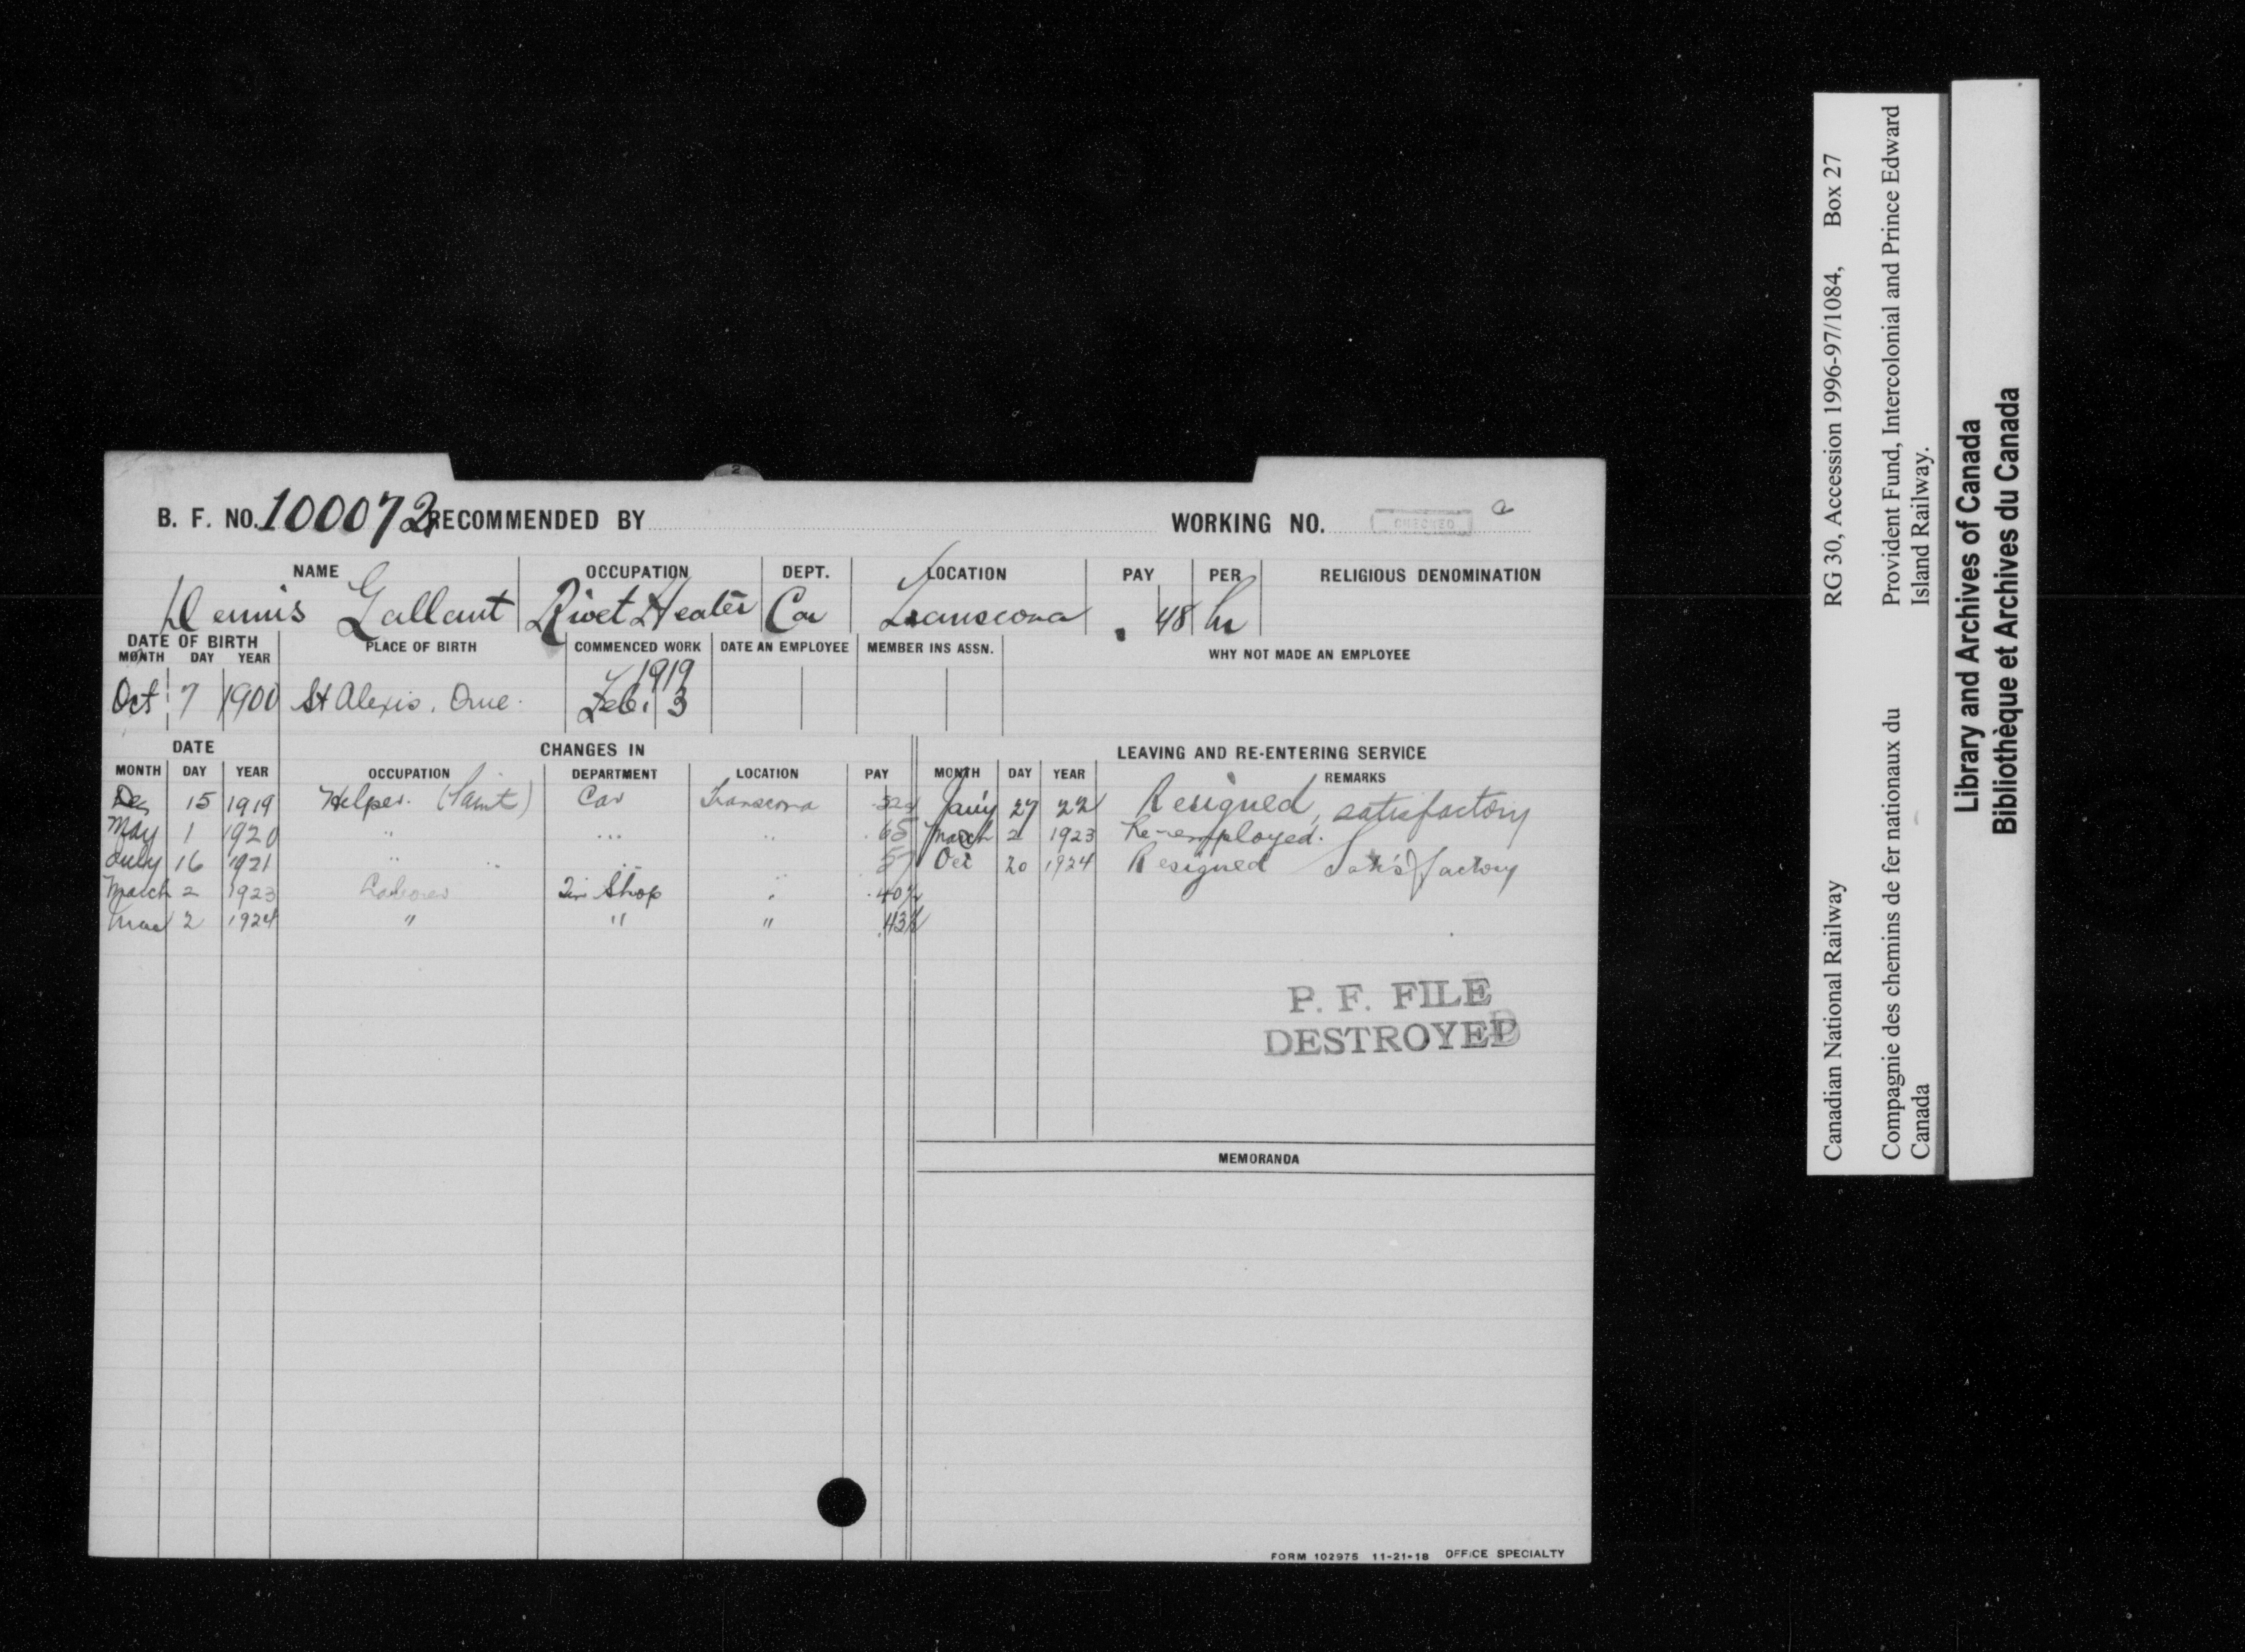 2
B. F. NO. 100072 RECOMMENDED BY WORKING NO. CHECKED
NAME OCCUPATION DEPT. LOCATION PAY PER RELIGIOUS DENOMINATION
Dennis Gallant Rivet Heater Car Transcona .48 hr
DATE OF BIRTH PLACE OF BIRTH COMMENCED WORK DATE AN EMPLOYEE MEMBER INS ASSN. WHY NOT MADE AN EMPLOYEE
MONTH DAY YEAR
1919
Oct 7 1900 St Alexis. Que. Feb. 3
DATE CHANGES IN LEAVING AND RE-ENTERING SERVICE
MONTH DAY YEAR OCCUPATION DEPARTMENT LOCATION PAY MONTH DAY YEAR REMARKS
Dec 15 1919 Helper. (Paint) Car Transcona Jan'y 27 22 Resigned, satisfactory
May 1 1920 " " " March 2 1923 Re-employed.
July 16 1921 " " " " 57 Oct 20 1924 Resigned Satisfactory
March 2 1923 Laborer Tin Shop " .40½
Mar 2 1924 " " " .43½
P. F. FILE
DESTROYED
MEMORANDA
FORM 102975 11-21-18 OFFICE SPECIALTY
Canadian National Railway RG 30, Accession 1996-97/1084, Box 27
Compagnie des chemins de fer nationaux du Provident Fund, Intercolonial and Prince Edward
Canada Island Railway.
Library and Archives of Canada
Bibliothèque et Archives du Canada